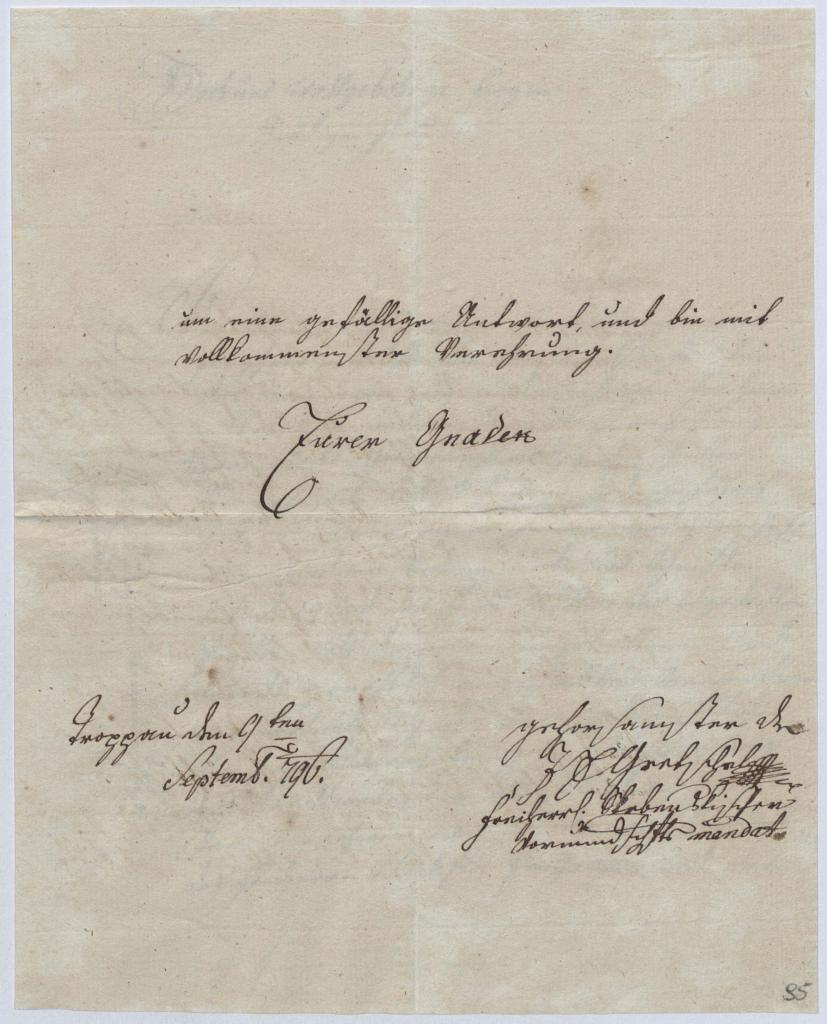 um eine gefällige Antwort, und bin mit
vollkommenster Verehrung.
Eurer Gnaden
Troppau den 9ten
Septemb. 796.
gehorsamster
Gretschel
Freiherrl.
Vormundschfts mandat.
35